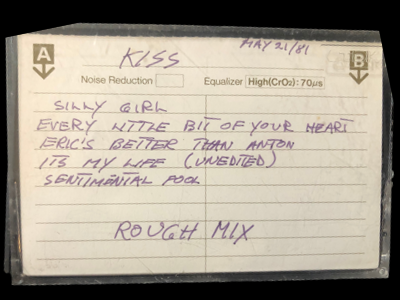 MAY 21/81
A KISS B
Noise Reduction Equalizer High(CrO2):70μs
SILLY GIRL
EVERY LITTLE BIT OF YOUR HEART
ERIC'S BETTER THAN ANTON
ITS MY LIFE (UNEDITED)
SENTIMENTAL FOOL
ROUGH MIX